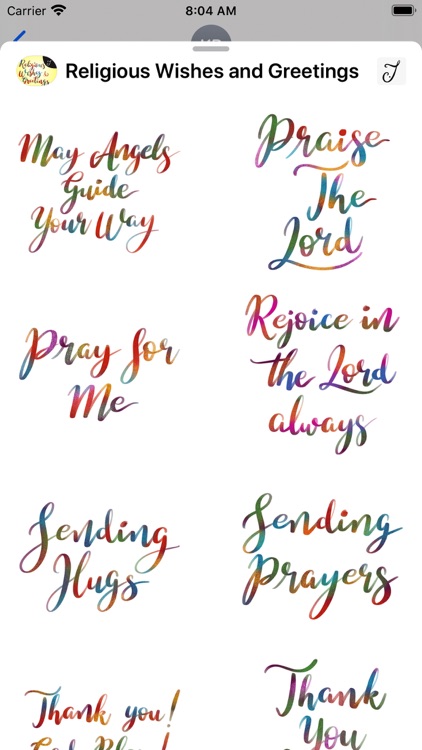 Carrier 8:04 AM
Religious Wishes and Greetings
May Angels
Guide
Your Way
Praise
The
Lord
Pray for
Me
Rejoice in
the Lord
always
Sending
Hugs
Sending
Prayers
Thank you!
Thank
You